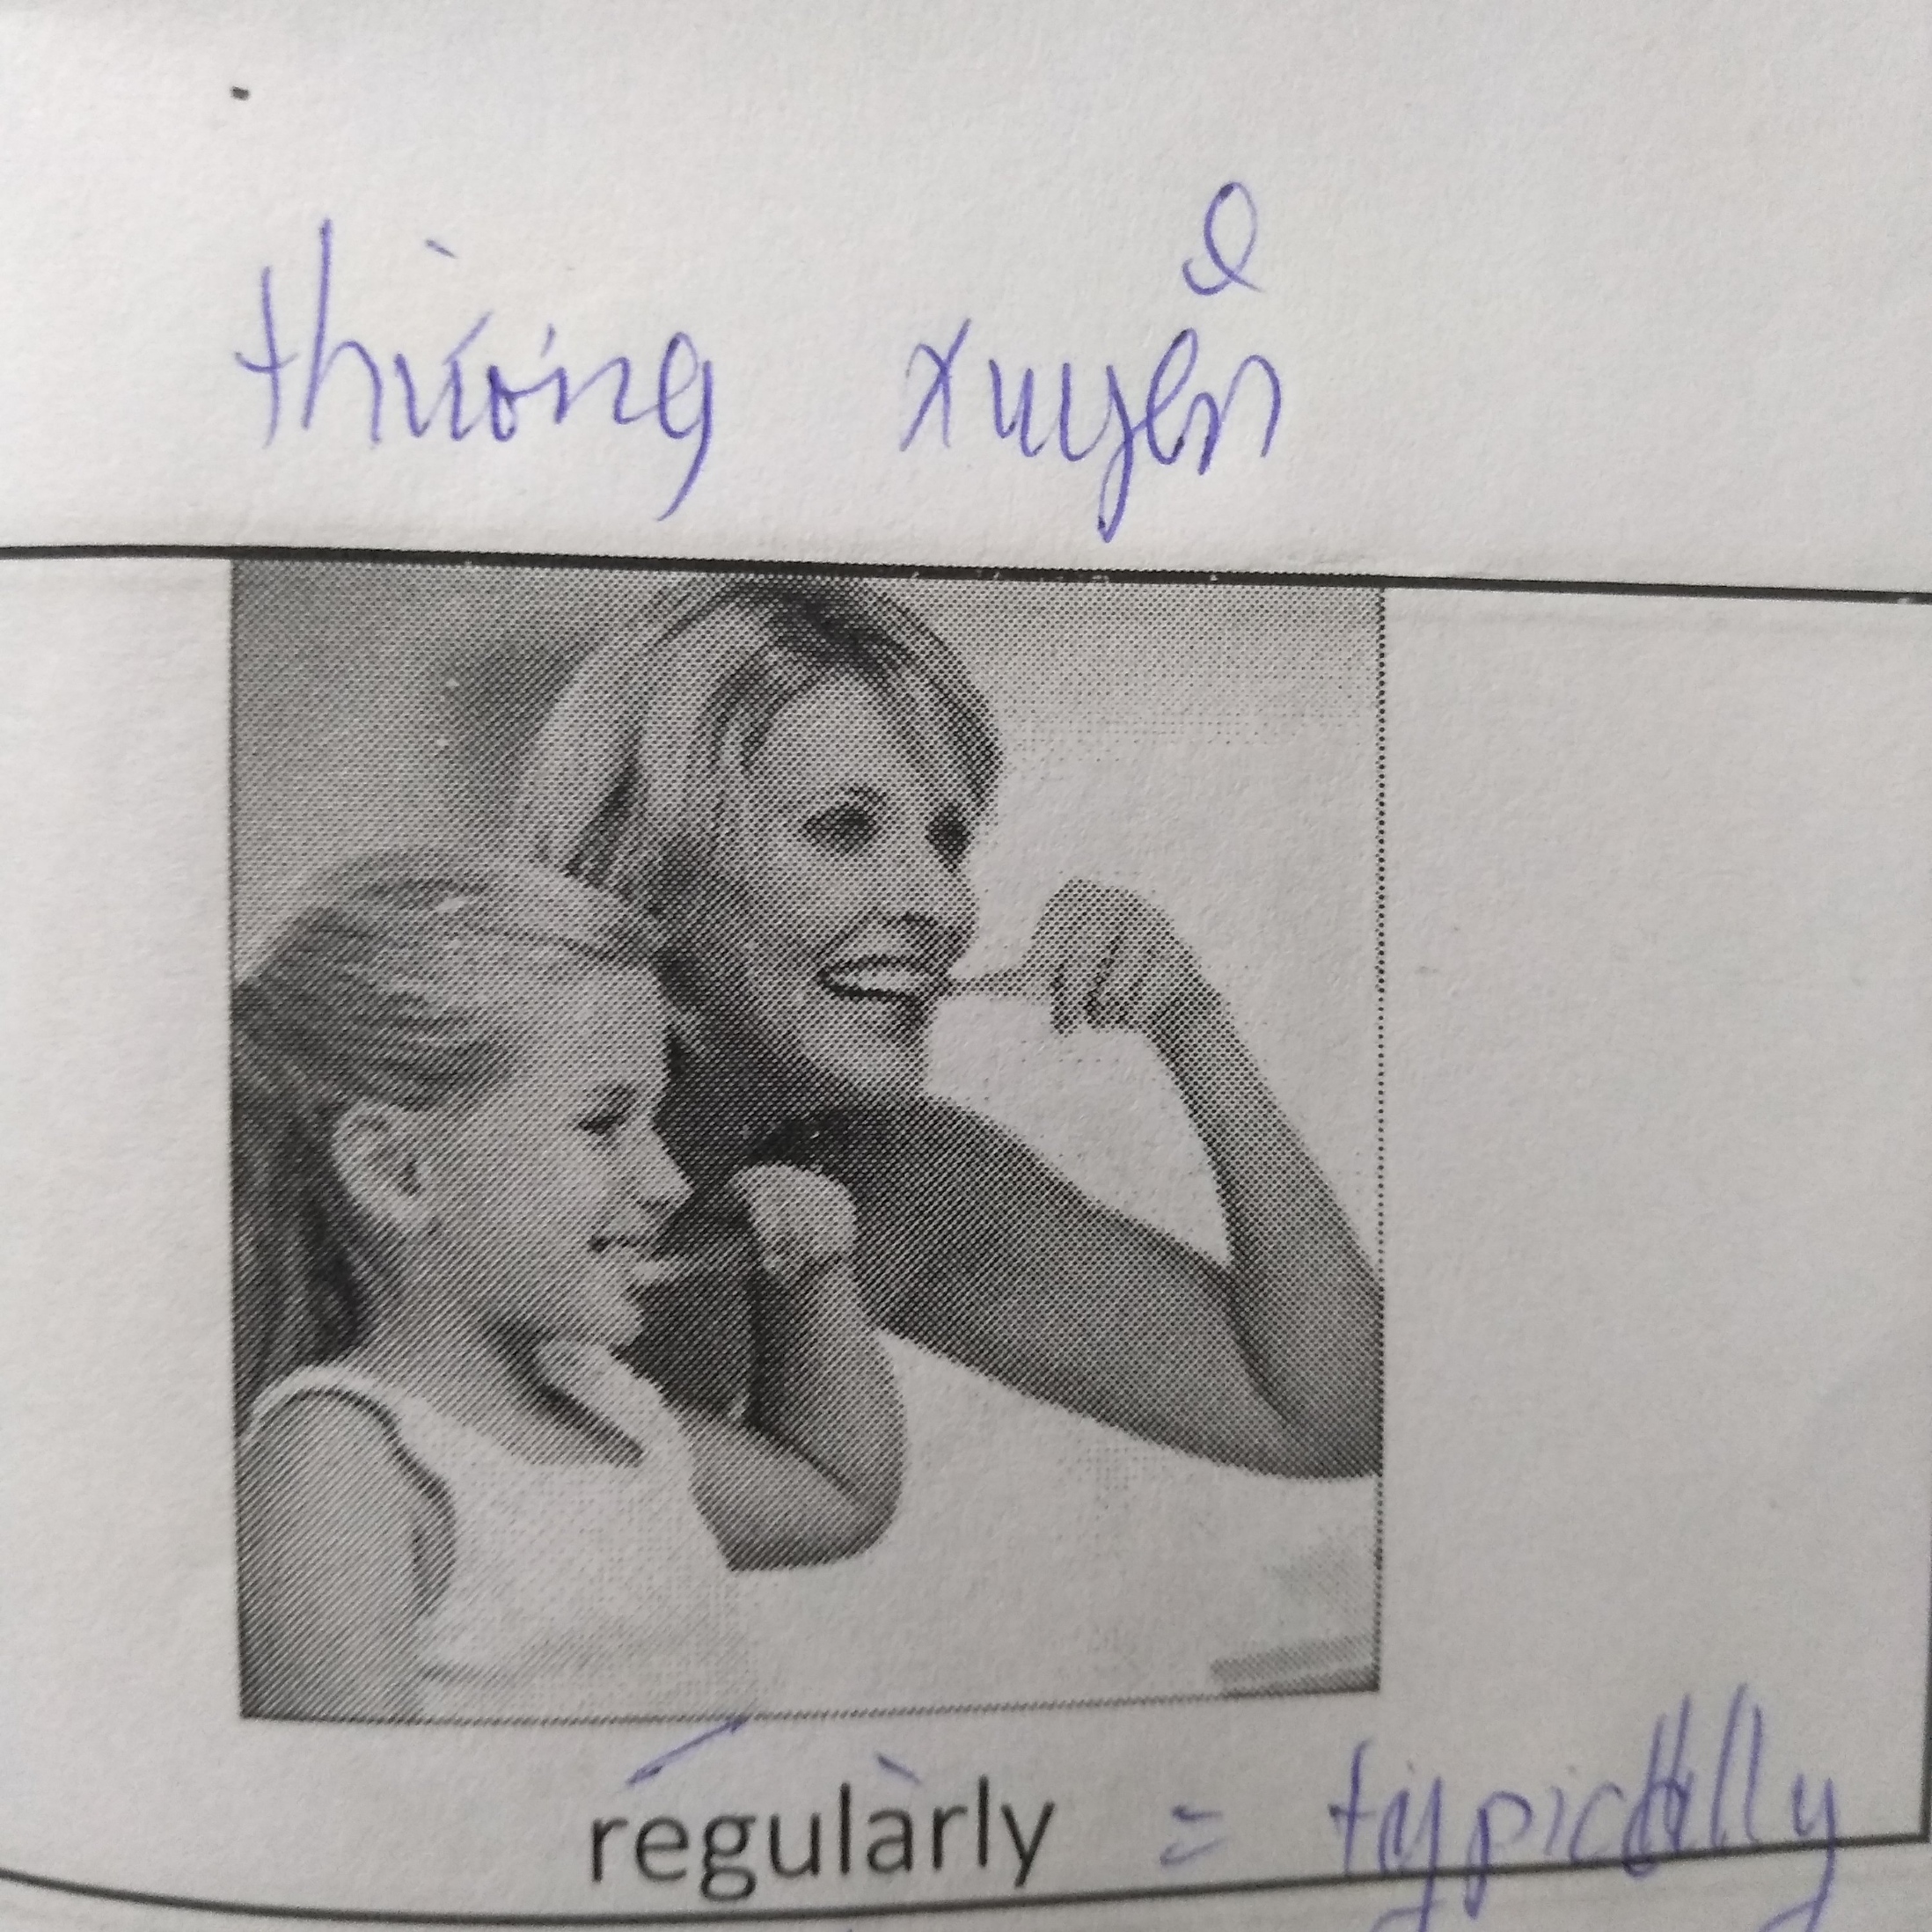 thường xuyên
regularly = typically